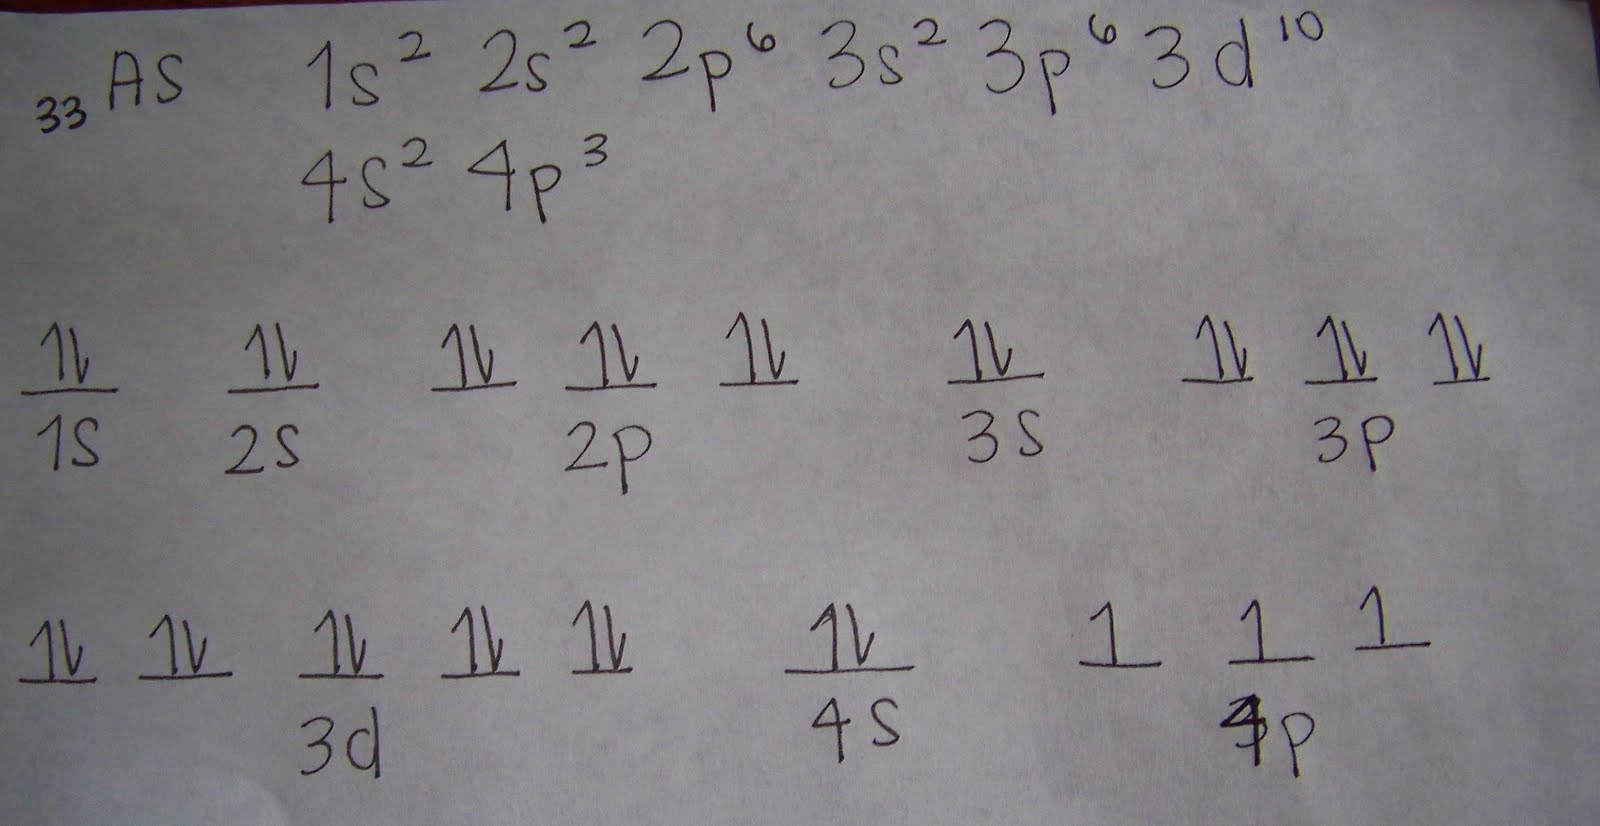 ₃₃AS 1s² 2s² 2p⁶ 3s² 3p⁶ 3d¹⁰
4s² 4p³
↿⇂ ↿⇂ ↿⇂ ↿⇂ ↿⇂ ↿⇂ ↿⇂ ↿⇂ ↿⇂
1s 2s 2p 3s 3p
↿⇂ ↿⇂ ↿⇂ ↿⇂ ↿⇂ ↿⇂ 1 1 1
3d 4s 4p